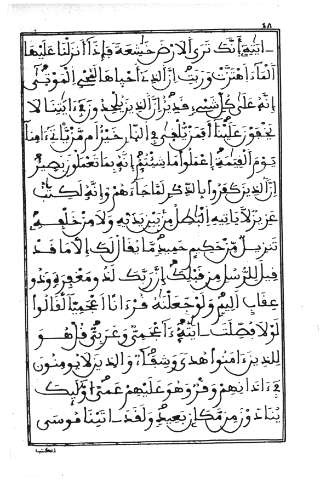 ٤٨
ءايته أنك ترى الارض خشعة فإذا أنزلنا عليها
الماء اهتزت وربت إن الذي أحياها لمحي الموتى
إنه على كل شيء قدير إن الذين يلحدون في ءايتنا لا
يخفون علينا أفمن يلقى في النار خير أم من ياتي ءامنا
يوم القيمة اعملوا ما شئتم إنه بما تعملون بصير
إن الذين كفروا بالذكر لما جاءهم وإنه لكتب
عزيز لا ياتيه البطل من بين يديه ولا من خلفه
تنزيل من حكيم حميد ما يقال لك إلا ما قد
قيل للرسل من قبلك إن ربك لذو مغفرة وذو
عقاب أليم ولو جعلنه قرءانا أعجميا لقالوا
لولا فصلت ءايته ءاعجمي وعربي قل هو
للذين ءامنوا هدى وشفاء والذين لا يومنون
في ءاذانهم وقر وهو عليهم عمى أوليك
ينادون من مكان بعيد ولقد ءاتينا موسى
الكتب